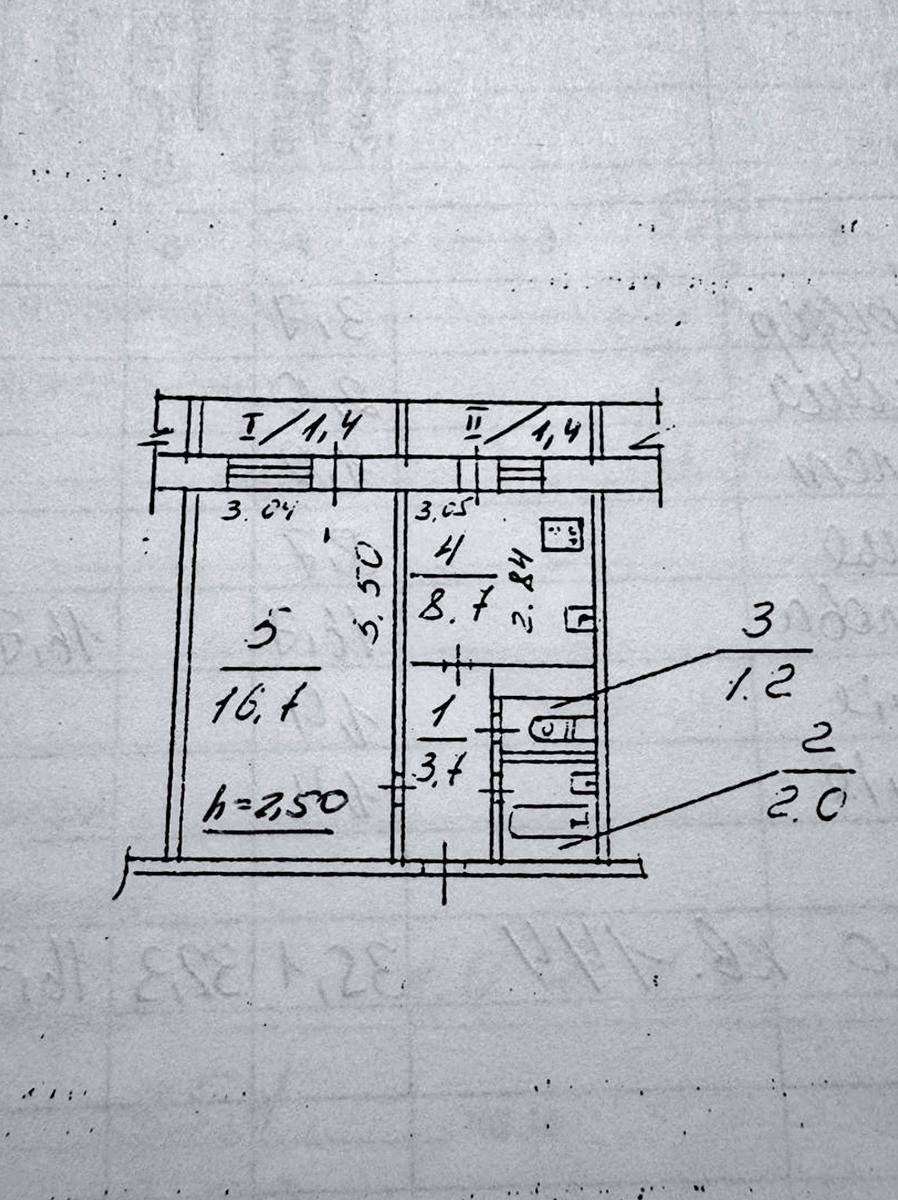 I/1,4
II/1,4
3.04
3,05
5,50
4
8.7
2.84
5
16,7
1
3,7
3
1.2
2
2.0
h=2,50